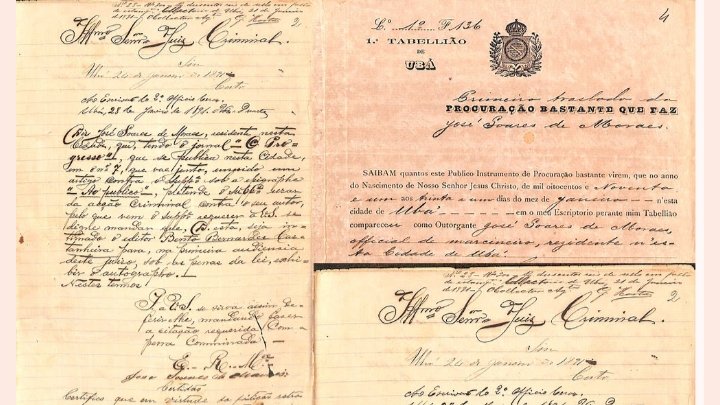 Illmo Senr Juiz Criminal.
Sim
Ubá 24 de janeiro de 1891
Certo
Ao Escrivão do 2º Officio
Ubá, 28 de Janeiro de 1891.
Diz José Soares de Moraes, residente nesta
Cidade, que, tendo o jornal "O Pro-
gresso", que se publica nesta Cidade,
em o nº 7, que vae junto, inserido um
artigo contra o Suppe sob a epigraphe
"Ao publico", pretende o Suppe usar
da acção Criminal contra o seu autor,
pelo que vem o Suppe requerer a V.S. se
digne mandar que seja in-
timado o editor Bento Bernardes Cas-
tanheira para, na primeira audiencia
deste juizo, sob as penas da lei, exhi-
bir o autographo.
Nestes termos
P. a V.S. se sirva assim de-
ferir-lhe, mandando fazer
a citação requerida, com a
pena comminada.
E. R. Mce
José Soares de Moraes
Certidão
Certifico que em virtude da petição retro
L.º 1º F. 136
4
1.º TABELLIÃO
DE
UBÁ
Primeiro traslado da
PROCURAÇÃO BASTANTE QUE FAZ
José Soares de Moraes.
SAIBAM quantos este Publico Instrumento de Procuração bastante virem, que no anno
do Nascimento de Nosso Senhor Jesus Christo, de mil oitocentos e Noventa
e um aos trinta e um dias do mez de janeiro n'esta
cidade de Ubá em o meu Escriptorio perante mim Tabellião
compareceu como Outorgante José Soares de Moraes,
official de marcineiro, rezidente n'es-
ta Cidade de Ubá.
Illmo Senr Juiz Criminal.
Sim
Ubá 24 de janeiro de 1891
Certo
Ao Escrivão do 2º Officio